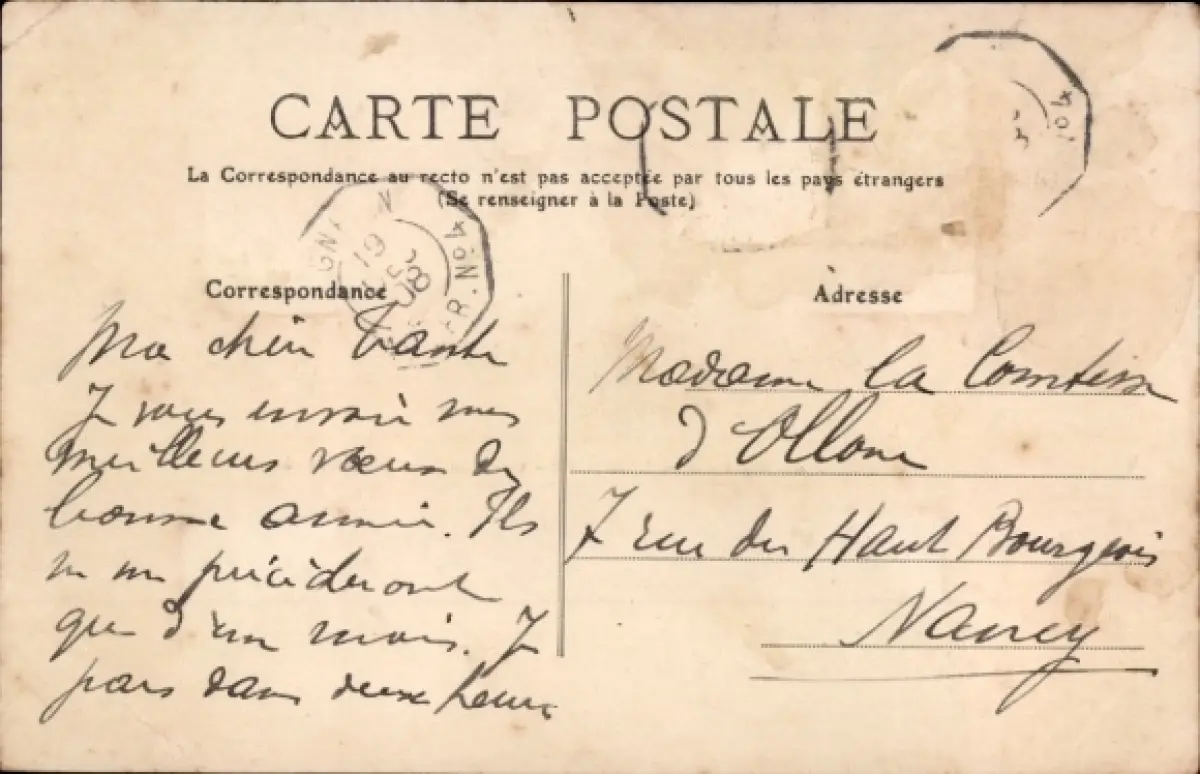 CARTE POSTALE
La Correspondance au recto n'est pas acceptée par tous les pays étrangers
(Se renseigner à la Poste)
Correspondance
Ma chère Tante
Je vous envoie mes
meilleurs vœux de
bonne année. Ils
ne me précèderont
que d'un mois. Je
pars dans deux heures
Adresse
Madame la Comtesse
d'Ollone
7 rue des Haut Bourgeois
Nancy
19
08
R. No 4
No 4